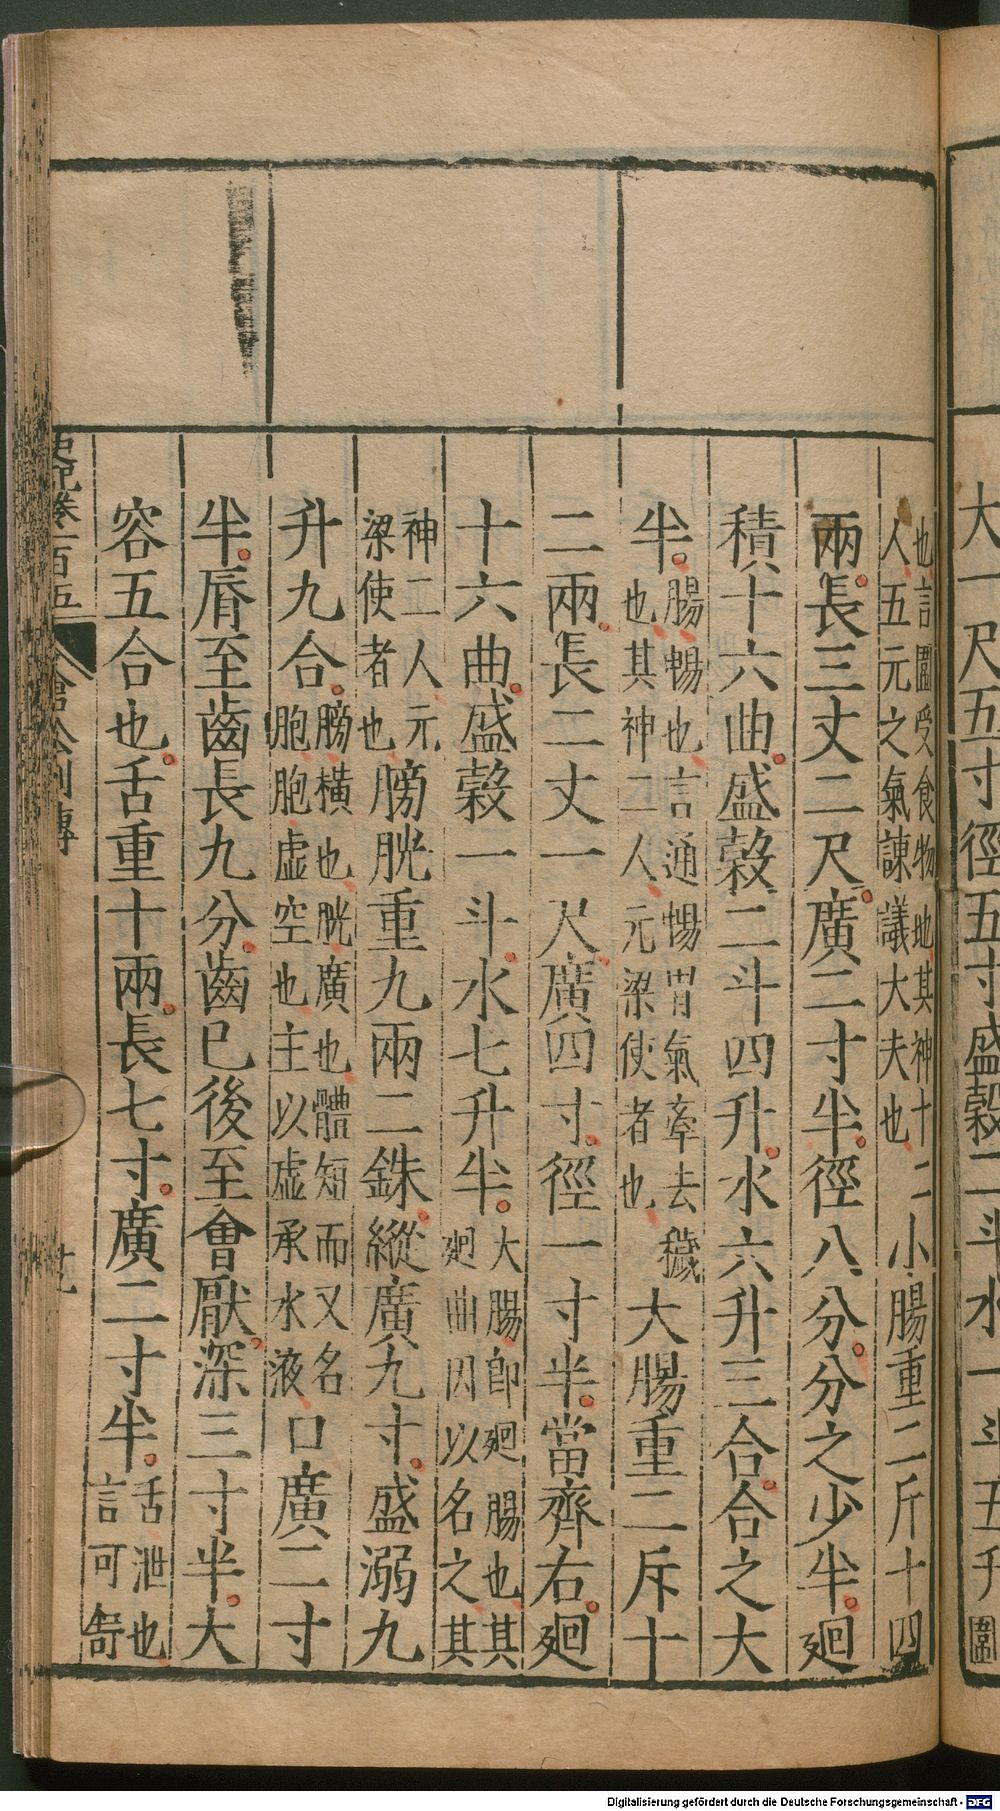 大一尺五寸徑五寸盛穀二斗水一斗五升圍
也言圍受食物地其神十二人五元之氣諫議大夫也小腸重二斤十四
兩長三丈二尺廣二寸半徑八分分之少半廻
積十六曲盛穀二斗四升水六升三合合之大
半腸暢也言通惕胃氣牽去穢也其神二人元梁使者也大腸重二斥十
二兩長二丈一尺廣四寸徑一寸半當齊右廻
十六曲盛穀一斗水七升半大腸卽廻腸也其廻曲因以名之其
神二人元梁使者也膀胱重九兩二銖縱廣九寸盛溺九
升九合膀橫也胱廣也體短而又名胞胞虛空也主以虛承水液口廣二寸
半脣至齒長九分齒已後至會厭深三寸半大
容五合也舌重十兩長七寸廣二寸半舌泄也言可舒
史記卷一百五 倉公列傳 廿九
Digitalisierung gefördert durch die Deutsche Forschungsgemeinschaft - DFG